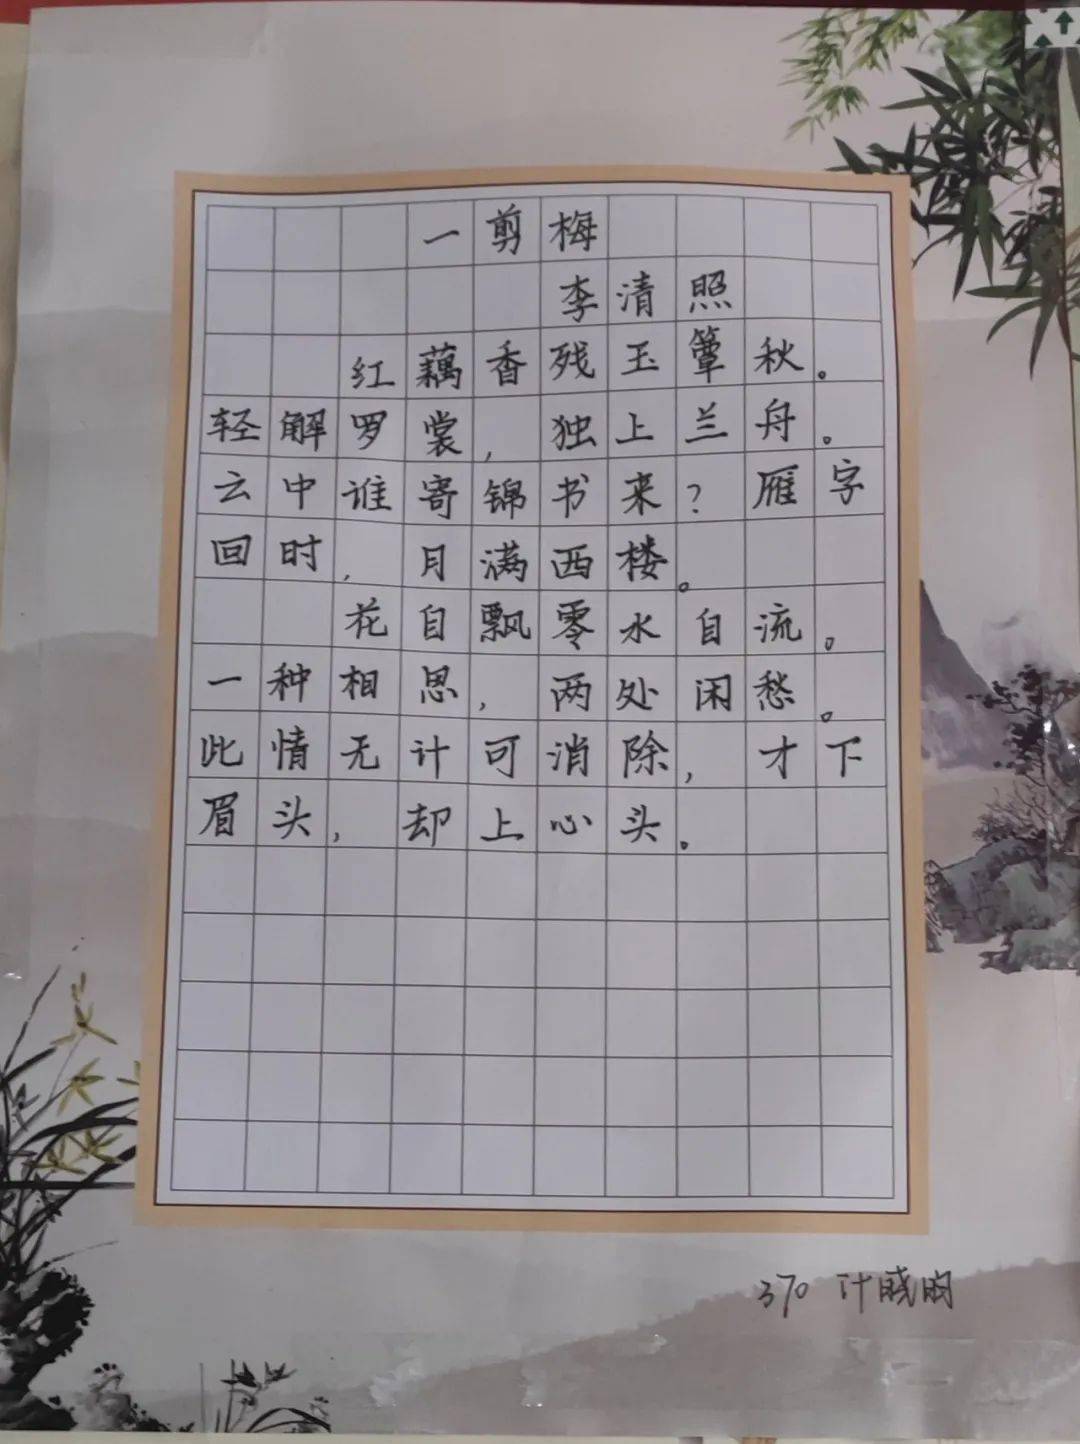 一剪梅
李清照
红藕香残玉簟秋。
轻解罗裳，独上兰舟。
云中谁寄锦书来？雁字
回时，月满西楼。
花自飘零水自流。
一种相思，两处闲愁。
此情无计可消除，才下
眉头，却上心头。
370 计晓昀